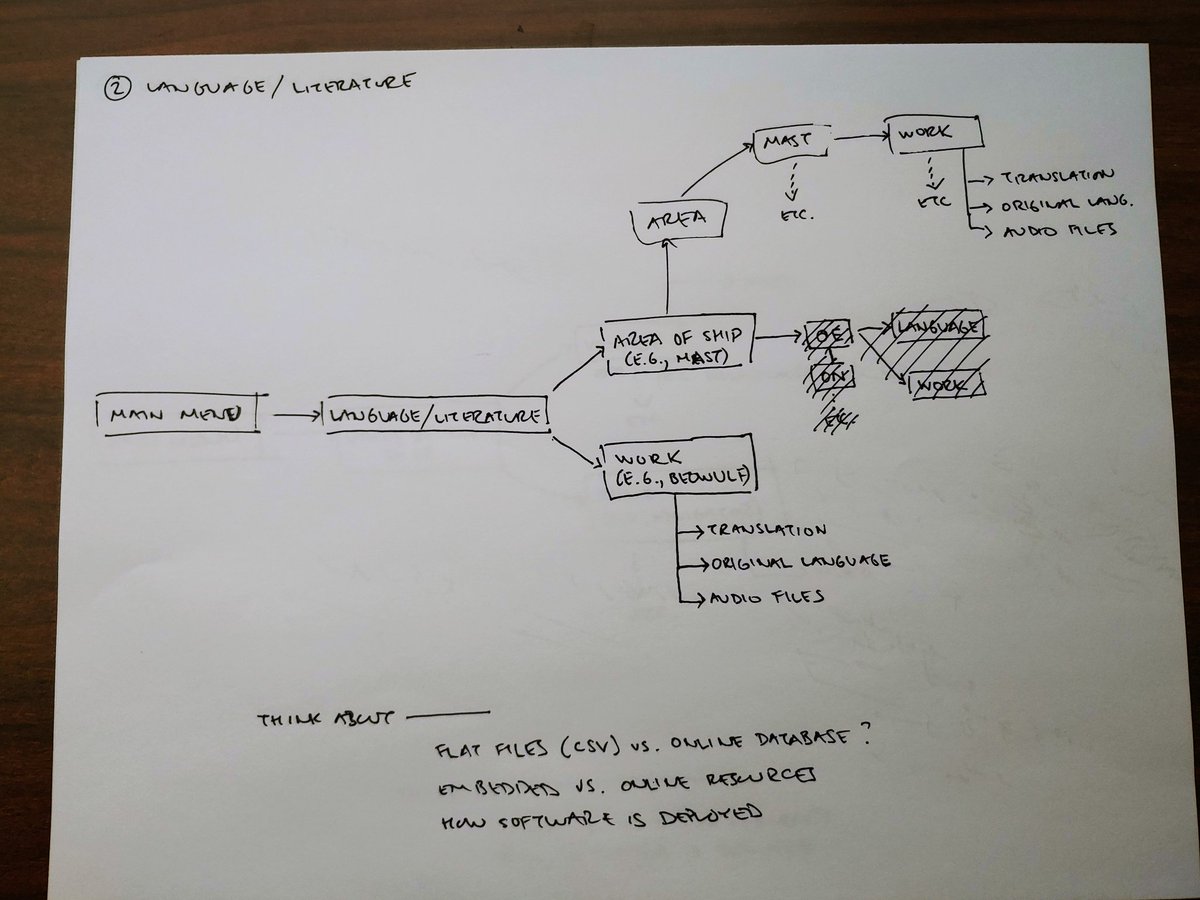 ② LANGUAGE/LITERATURE
MAST
WORK
ETC.
ETC
TRANSLATION
ORIGINAL LANG.
AUDIO FILES
AREA
AREA OF SHIP
(E.G., MAST)
OE
LANGUAGE
ON
WORK
ETC.
MAIN MENU
LANGUAGE/LITERATURE
WORK
(E.G., BEOWULF)
TRANSLATION
ORIGINAL LANGUAGE
AUDIO FILES
THINK ABOUT
FLAT FILES (CSV) VS. ONLINE DATABASE?
EMBEDDED VS. ONLINE RESOURCES
HOW SOFTWARE IS DEPLOYED